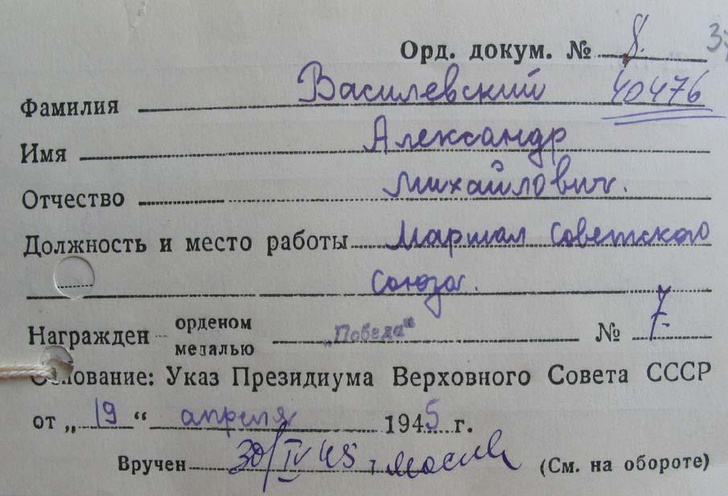 Орд. докум. № 8.
Фамилия Василевский 40476
Имя Александр
Отчество Михайлович.
Должность и место работы Маршал Советского
Союза.
Награжден орденом медалью „Победа" № 7
Основание: Указ Президиума Верховного Совета СССР
от „19“ апреля 1945 г.
Вручен 30/IV 45 (См. на обороте)